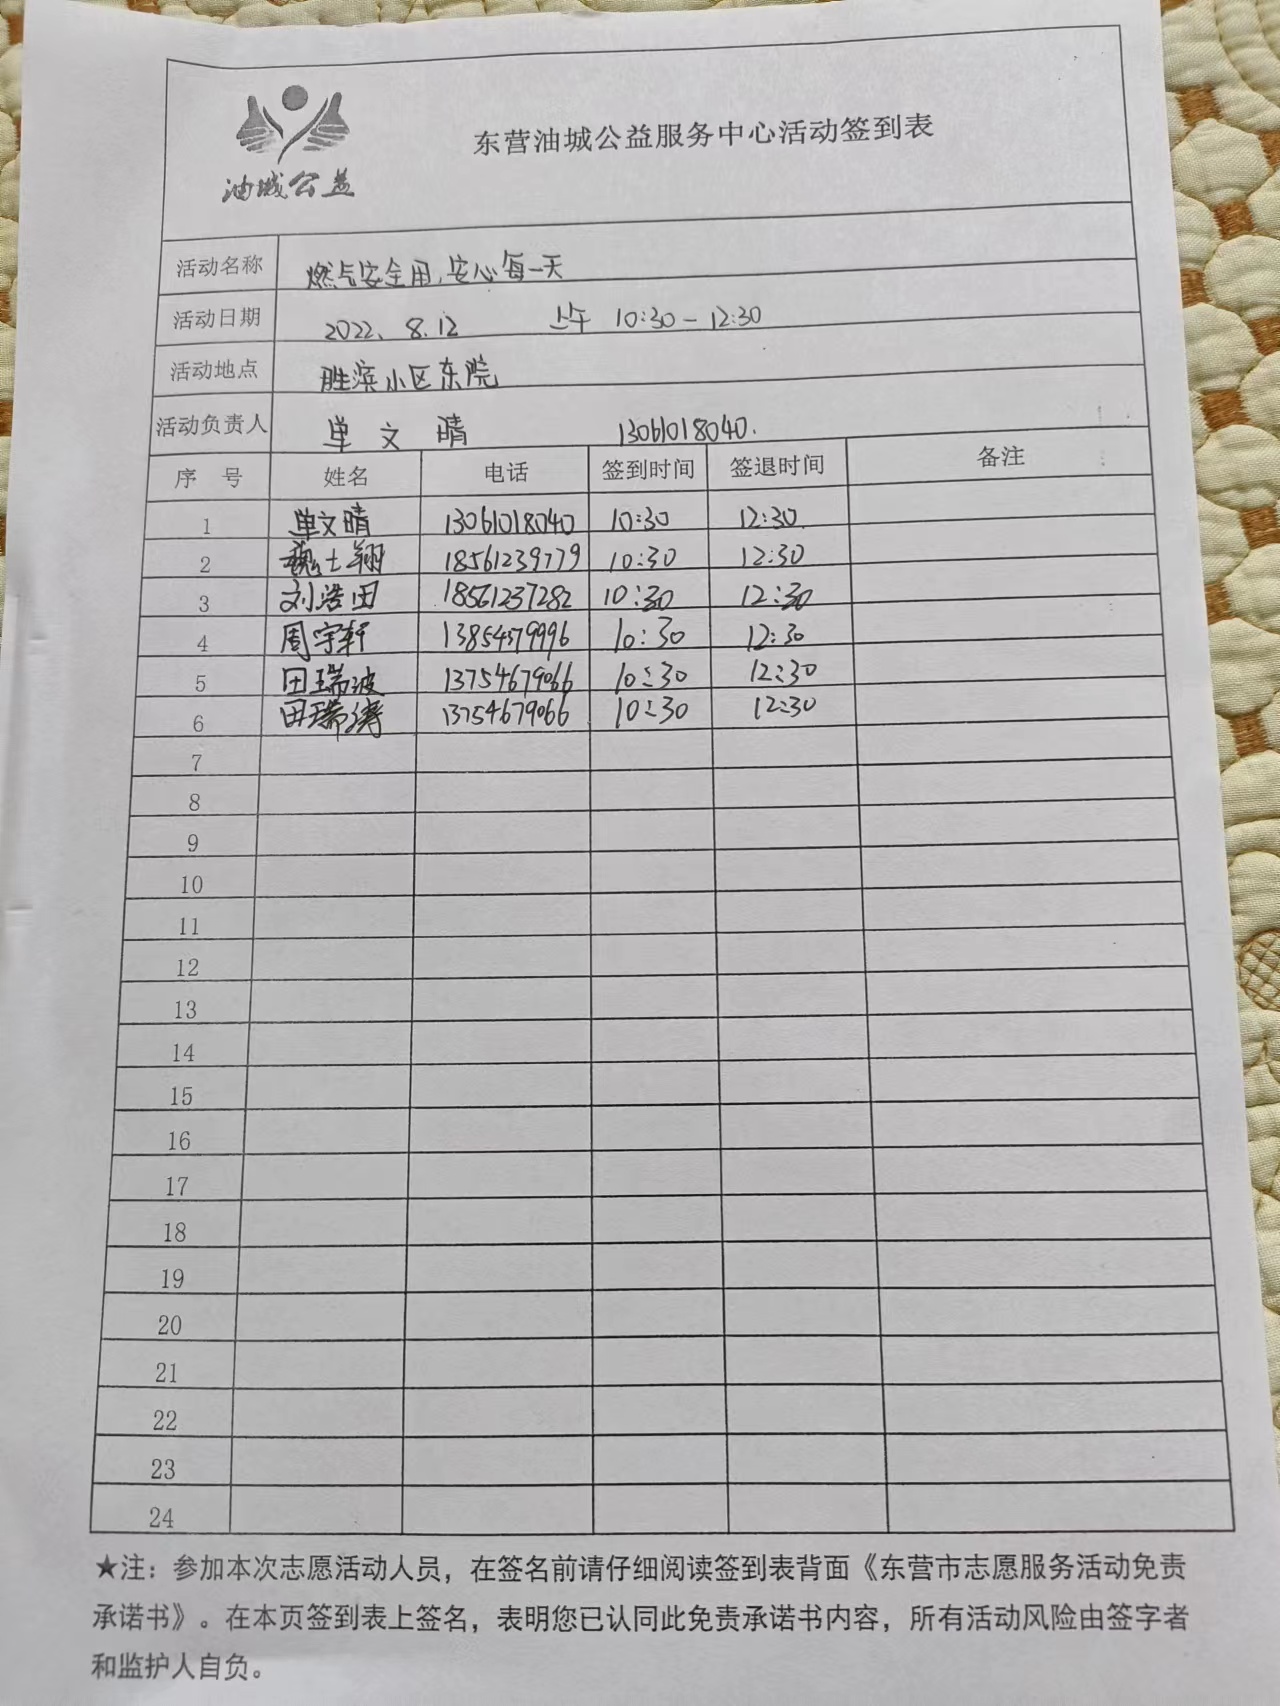 油城公益
东营油城公益服务中心活动签到表
活动名称 燃气安全用,安心每一天
活动日期 2022、8.12 上午 10:30-12:30
活动地点 胜滨小区东院
活动负责人 单文晴 13061018040.
序号 姓名 电话 签到时间 签退时间 备注
1 单文晴 13061018040 10:30 12:30
2 魏士翔 18561239779 10:30 12:30
3 刘浩田 18561237282 10:30 12:30
4 周宇轩 13854579996 10:30 12:30
5 田瑞波 13754679066 10:30 12:30
6 田瑞涛 13754679066 10:30 12:30
7
8
9
10
11
12
13
14
15
16
17
18
19
20
21
22
23
24
★注：参加本次志愿活动人员，在签名前请仔细阅读签到表背面《东营市志愿服务活动免责
承诺书》。在本页签到表上签名，表明您已认同此免责承诺书内容，所有活动风险由签字者
和监护人自负。